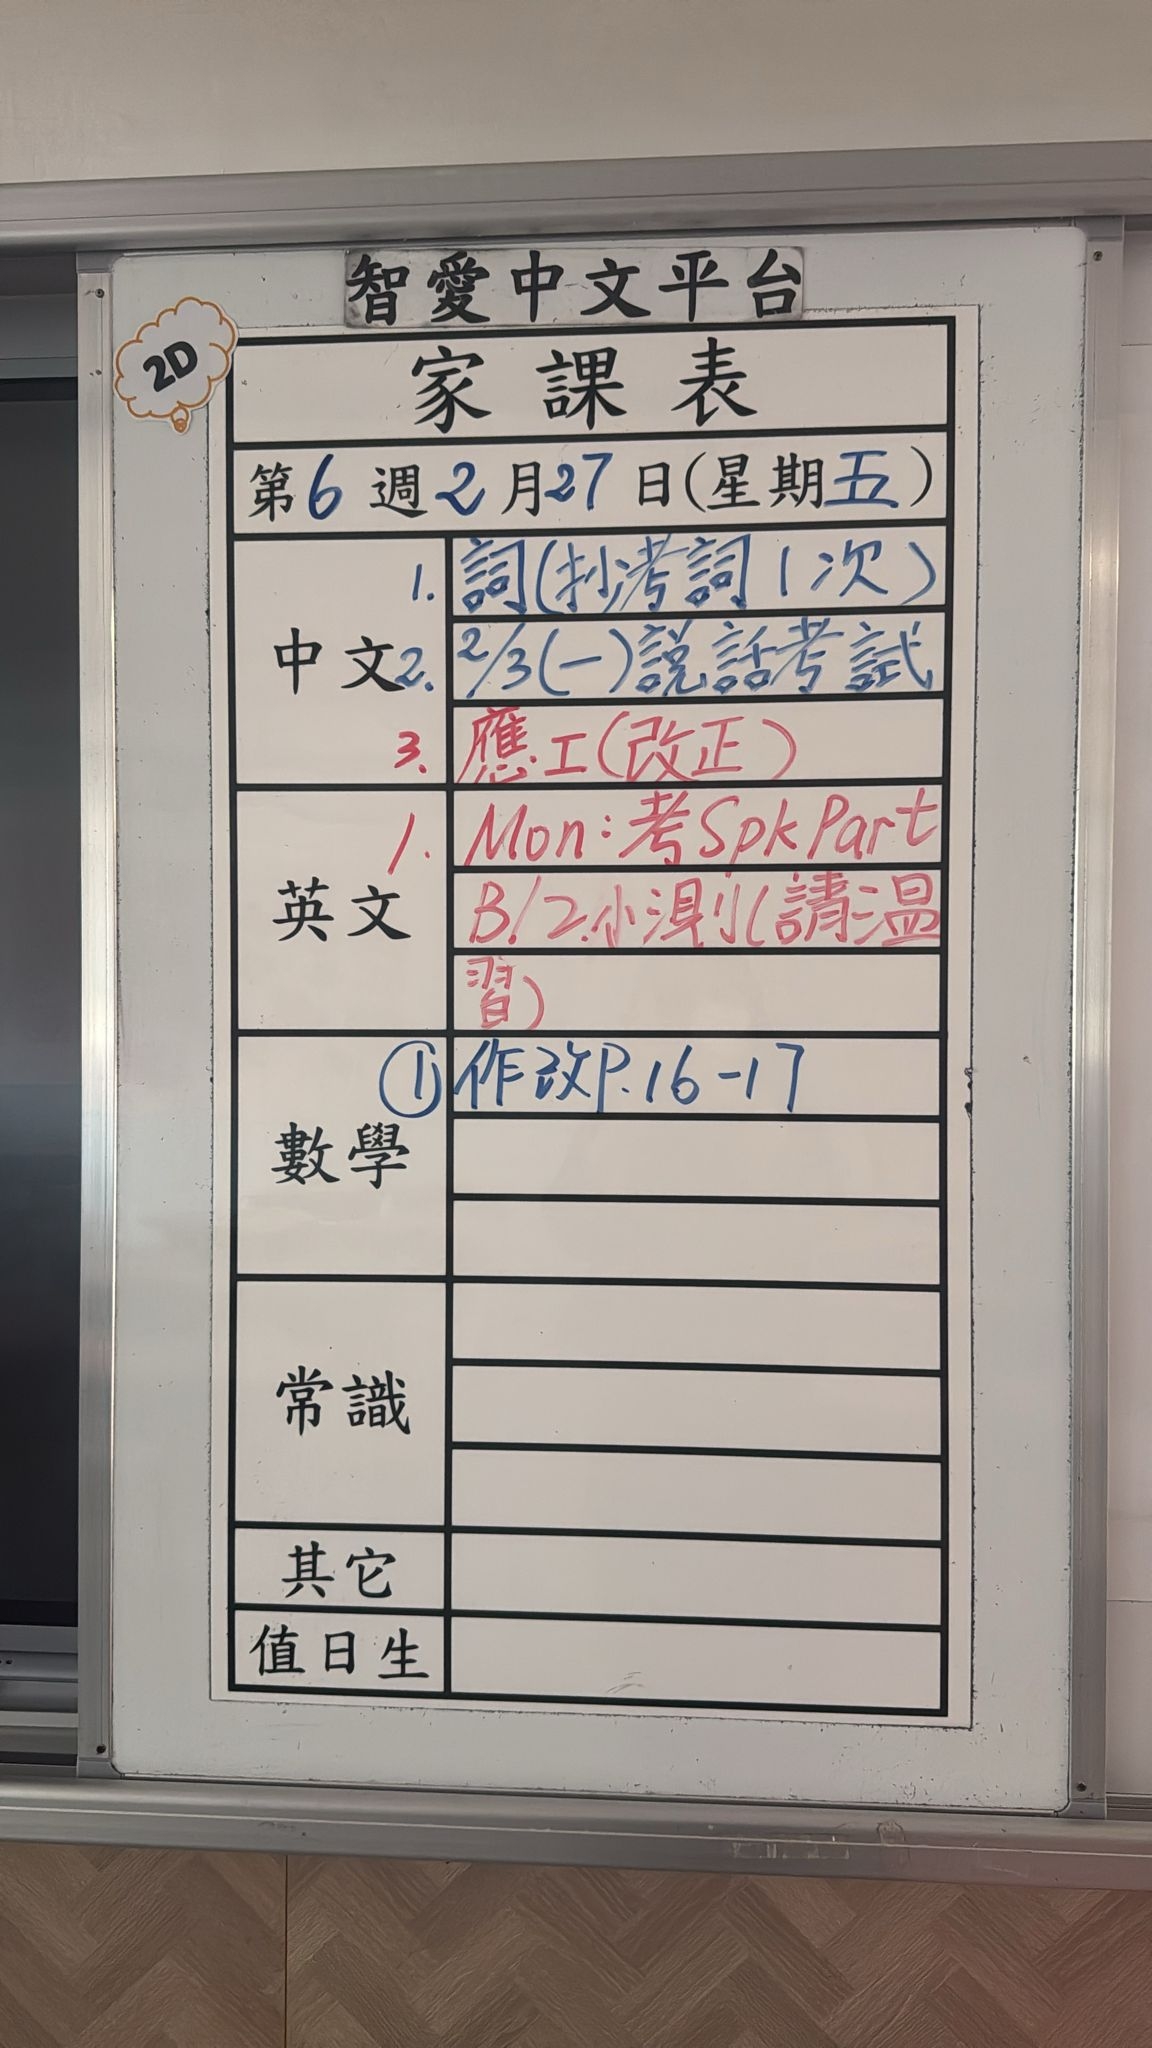 智愛中文平台
2D
家課表
第6週2月27日(星期五)
中文
1. 詞(抄考詞1次)
2. 2/3(一)說話考試
3. 應工(改正)
英文
1. Mon:考Spk Part
B/2.小測(請溫
習)
數學
① 作改P.16-17
常識
其它
值日生